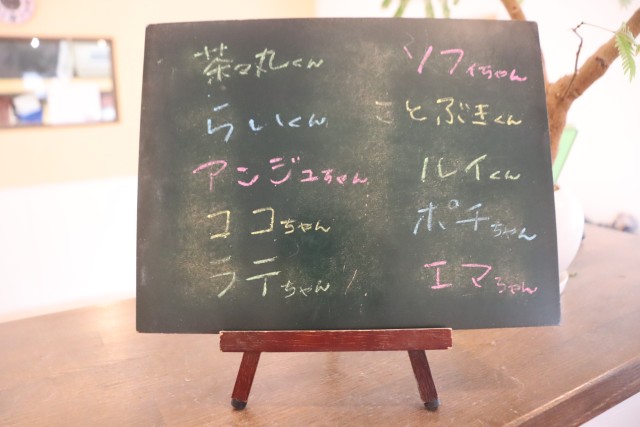 茶々丸くん
らいくん
アンジュちゃん
ココちゃん
ラテちゃん
ソフィちゃん
ことぶきくん
ルイくん
ポチちゃん
エマちゃん